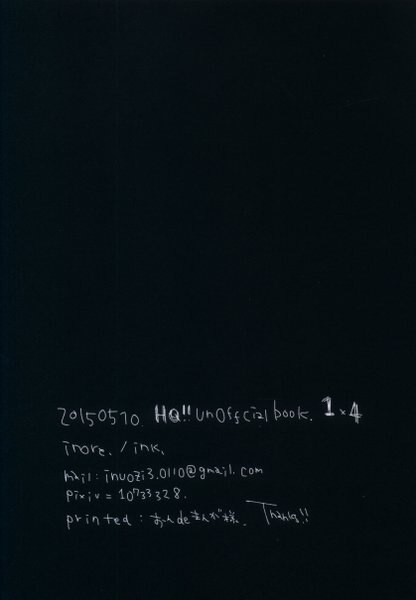 20150510. HQ!! unofficial book. 1×4
inore. / ink.
mail : inuozi3.0110@gmail.com
pixiv = 10733328.
printed : おーんdeまんが様. Thanks!!